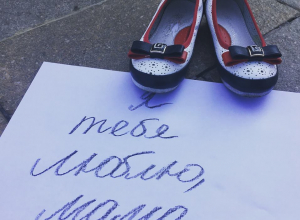 Я
тебе
люблю,
мама